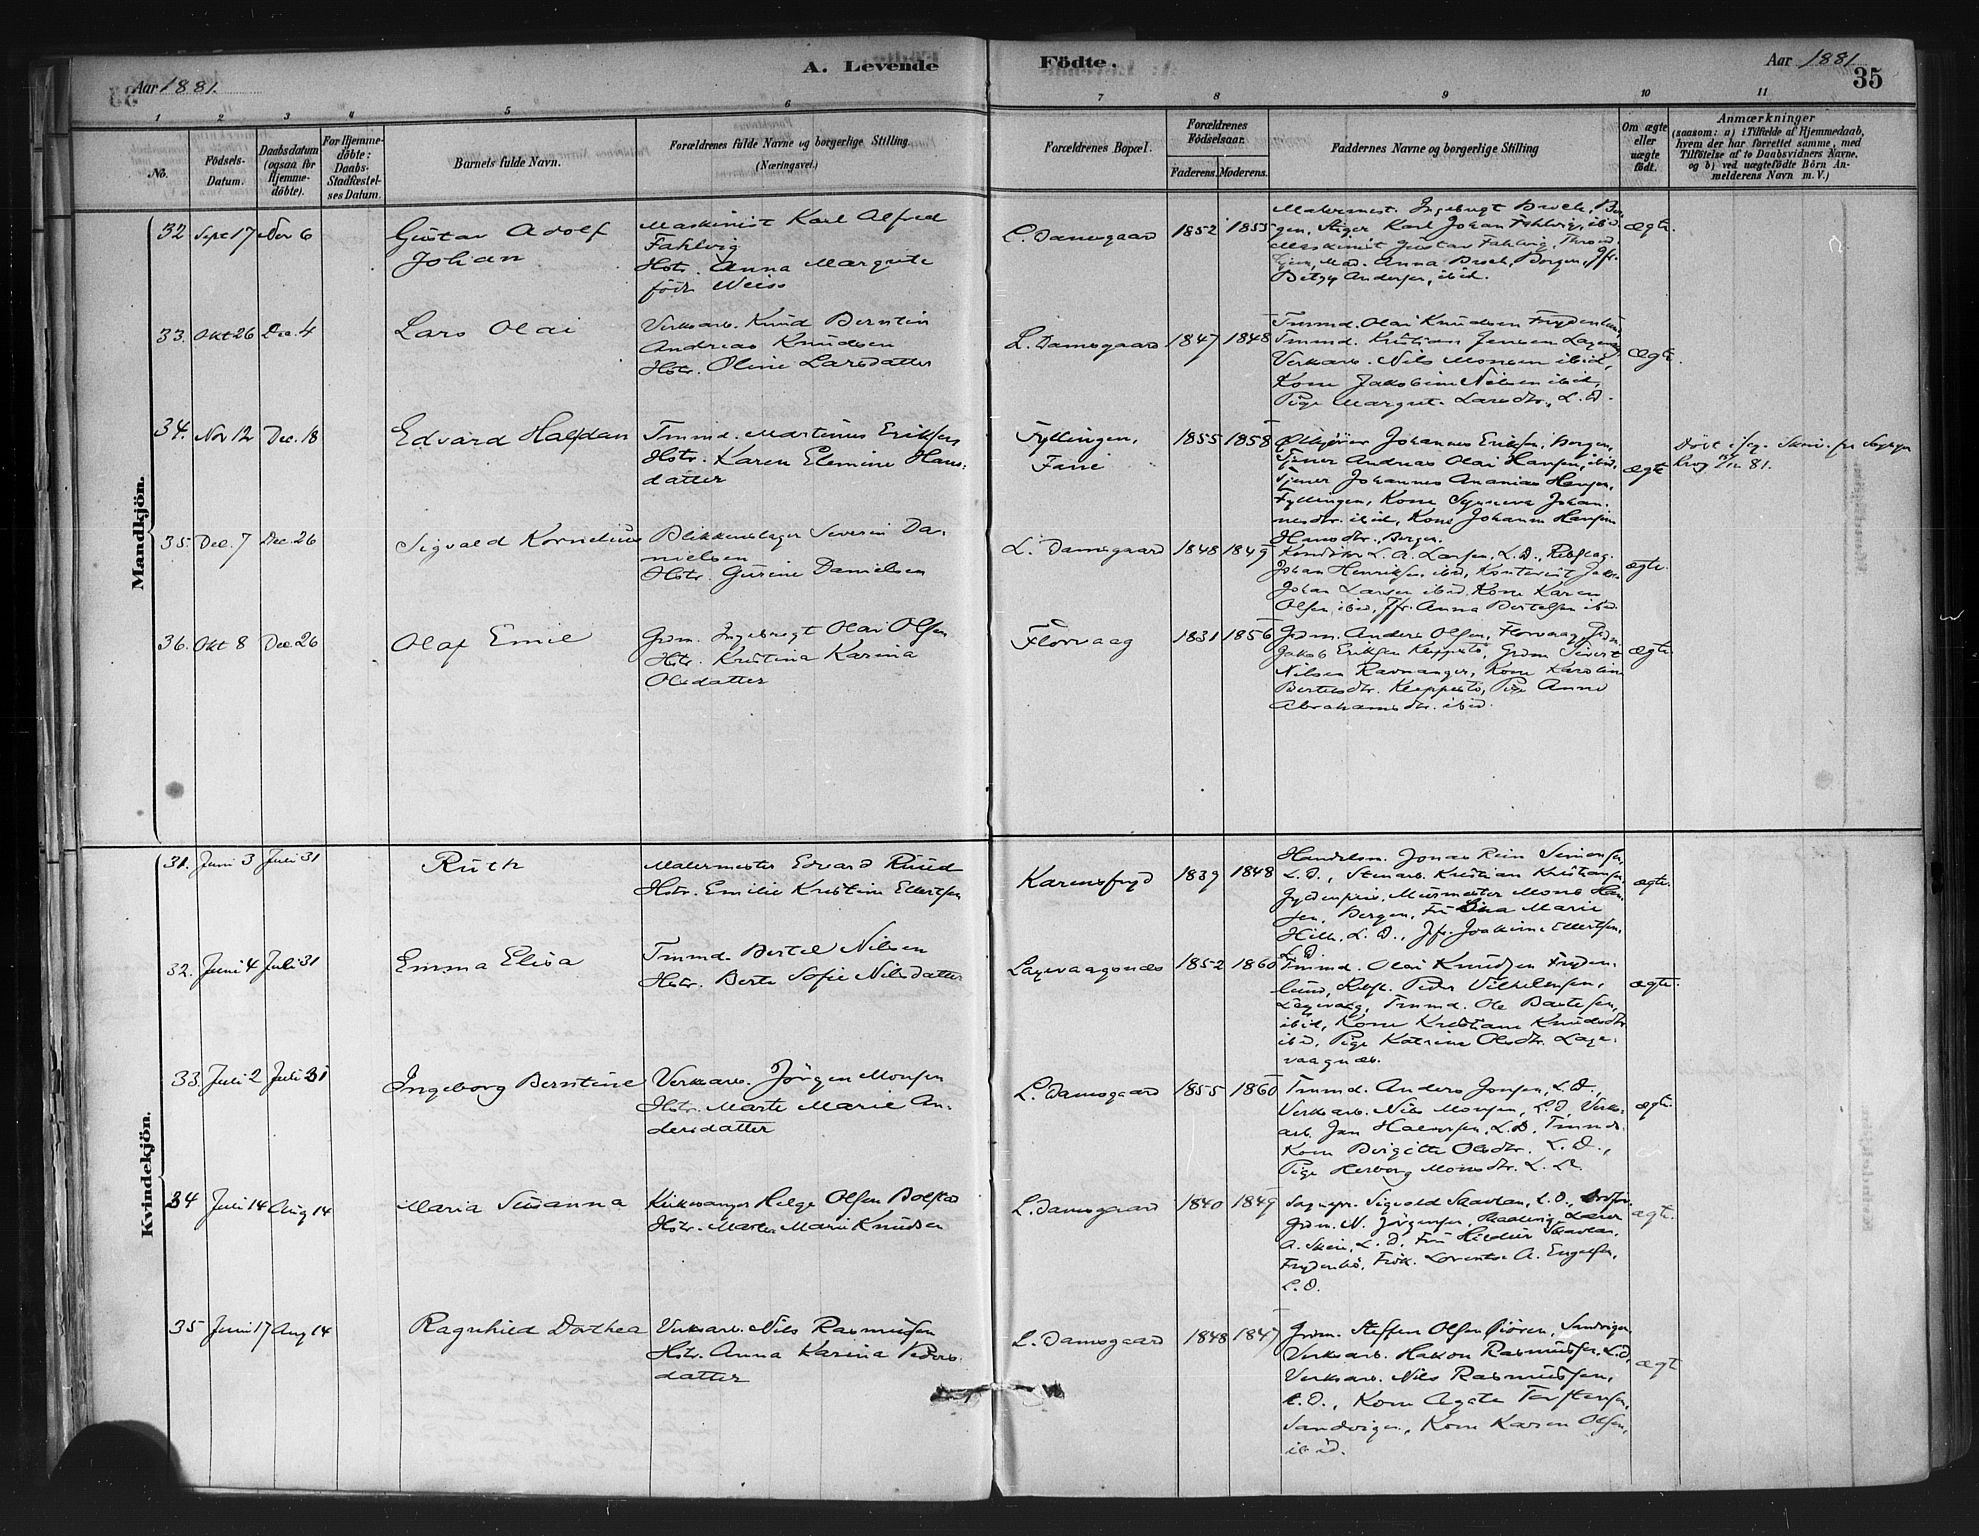 Aar 1881.
A. Levende
Födte.
Aar 1881
35
1 2 3 4 5 6 7 8 9 10 11
No.
Födsels-
Datum.
Daabsdatum
(ogsaa for
Hjemme-
döbte).
For Hjemme-
döbte:
Daabs-
Stadfæstel-
ses Datum.
Barnets fulde Navn.
Forældrenes fulde Navne og borgerlige Stilling
(Næringsvei.)
Forældrenes Bopæl.
Forældrenes
Födselsaar.
Faderens. Moderens.
Faddernes Navne og borgerlige Stilling
Om ægte
eller
uægte
födt.
Anmærkninger
(saasom: a) i Tilfælde af Hjemmedaab,
hvem der har forrettet samme, med
Tilföielse af to Daabsvidners Navne,
og b) ved uægtefödte Börn An-
melderens Navn m. V.)
Mandkjön.
32 Sept 17 Nov 6
Gustav Adolf
Johan
Maskinist Karl Alfred
Fahlvig
Hstr. Anna Margrete
föde Weiss
L. Damsgaard 1852 1855
Malermest. Ingebrigt Broch, Ber-
gen, Stiger Karl Johan Fahlvig, ibid.
Maskinist Gustav Fahlvig, Thrond-
hjem, Mad. Anna Broch, Bergen, Jfr.
Betzy Andersen, ibid.
ægte.
33. Okt 26 Dec. 4
Lars Olai
Verksarb. Knud Berntin
Andreas Knudsen
Hstr. Oline Larsdatter
L. Damsgaard 1847 1848
Tmmd. Olai Knudsen Frydenlund
Tmmd. Kristian Jensen
Verksarb. Nils Monsen ibid,
Kone Jakobine Nilsen ibid,
Pige Margret. Larsdtr., L. D.
ægte.
34. Nov 12 Dec. 18
Edvard Halfdan
Tmmd. Martinus Eriksen
Hstr. Karen Elemine Hans-
datter
Fyllingen,
Fane
1855 1858
Johannes Eriksen, Bergen,
Tjener Andreas Olai Hansen, ibid.
Tjener Johannes Ananias Hansen,
Fyllingen, Kone Synneva Johan-
nesdtr. ibid, Kone Johanna Hansine
Hansdtr., Bergen.
ægte
Døbt
81.
35. Dec. 7 Dec. 26
Sigvald Kornelius
Blikkenslager Severin Da-
nielsen
Hstr. Gurine Danielsen
L. Damsgaard 1848 1849
Konditor L. A. Larsen, L. D., Rebslag.
Johan Henriksen ibid, Kontorist
Johan Larsen ibid, Kone Karen
Olsen, ibid, Jfr. Anna Bertelsen ibid.
ægte.
36. Okt 8 Dec. 26
Olaf Emil
Grdm. Ingebrigt Olai Olsen
Hstr. Kristina Karina
Olsdatter
Florvaag
1831 1856
Grdm. Anders Olsen, Florvaag, Grdm.
Jakob Eriksen Kleppestö, Grdm Sivert
Nilsen Ravnanger, Kone Karoline
Bertelsdtr. Kleppestö, Pige Anne
Abrahamsdtr. ibid.
ægte.
Kvindekjön.
31. Juni 3 Juli 31
Ruth
Malermester Edvard Ruud
Hstr. Emilie Kristine Ellertsen
Karensfryd 1839 1848
Handelsm. Jonas Rein Simonsen,
L. D., Stenarb. Kristian Kristiansen,
Gyldenpriis, Murmester Mons Han-
sen, Bergen, Fru Lina Marie
L. D., Jfr. Joakime Ellertsen,
L. D.
ægte.
32. Juni 4 Juli 31
Emma Elisa
Tmmd. Bertel Nilsen
Hstr. Berte Sofie Nilsdatter
Laxevaagsnæs 1852 1860
Tmmd. Olai Knudsen Fryden-
lund, Rebsl. Peder Vilhelmsen,
Laxevaag, Tmmd. Ole Bertelsen,
ibid, Kone Kristiane Knudsdtr
ibid, Pige Katrine Olsdtr. Laxe-
vaagnæs.
ægte.
33. Juli 2 Juli 31
Ingeborg Berntine
Verksarb. Jörgen Monsen
Hstr. Marte Marie An-
dersdatter
L. Damsgaard 1855 1860
Tmmd. Anders Jonsen, L. D.,
Verksarb. Nils Monsen, L. D., Verks-
arb. Jan Halvorsen, L. D., Tmmds-
Kone Birgitte Olsdtr. L. D.,
Pige Herborg Monsdtr. L. D.
ægte.
34 Juli 14 Aug 14
Maria Susanna
Kirkesanger Helge Olsen Bolstad
Hstr. Marta Marie Knudsen
L. Damsgaard 1840 1849
Sognepr. Sigvald Skavlan, L. D.,
Grdm. N. Jörgensen, Lærer
A. Skeie, L. D., Fru Hildur Skavlan,
Frydenbö, Frök. Lorentse A. Engelsen,
L. D.
ægte.
35 Juni 17 Aug 14
Ragnhild Dorthea
Verksarb. Nils Rasmussen
Hstr. Anna Karina Peders-
datter
L. Damsgaard 1848 1847
Grdm. Steffen Olsen Sandvigen
Verksarb. Hakon Rasmussen, L. D.,
Verksarb. Nils Rasmussen,
L. D., Kone Agate Torstensen,
Sandvigen, Kone Karen Olsen,
ibid.
ægte